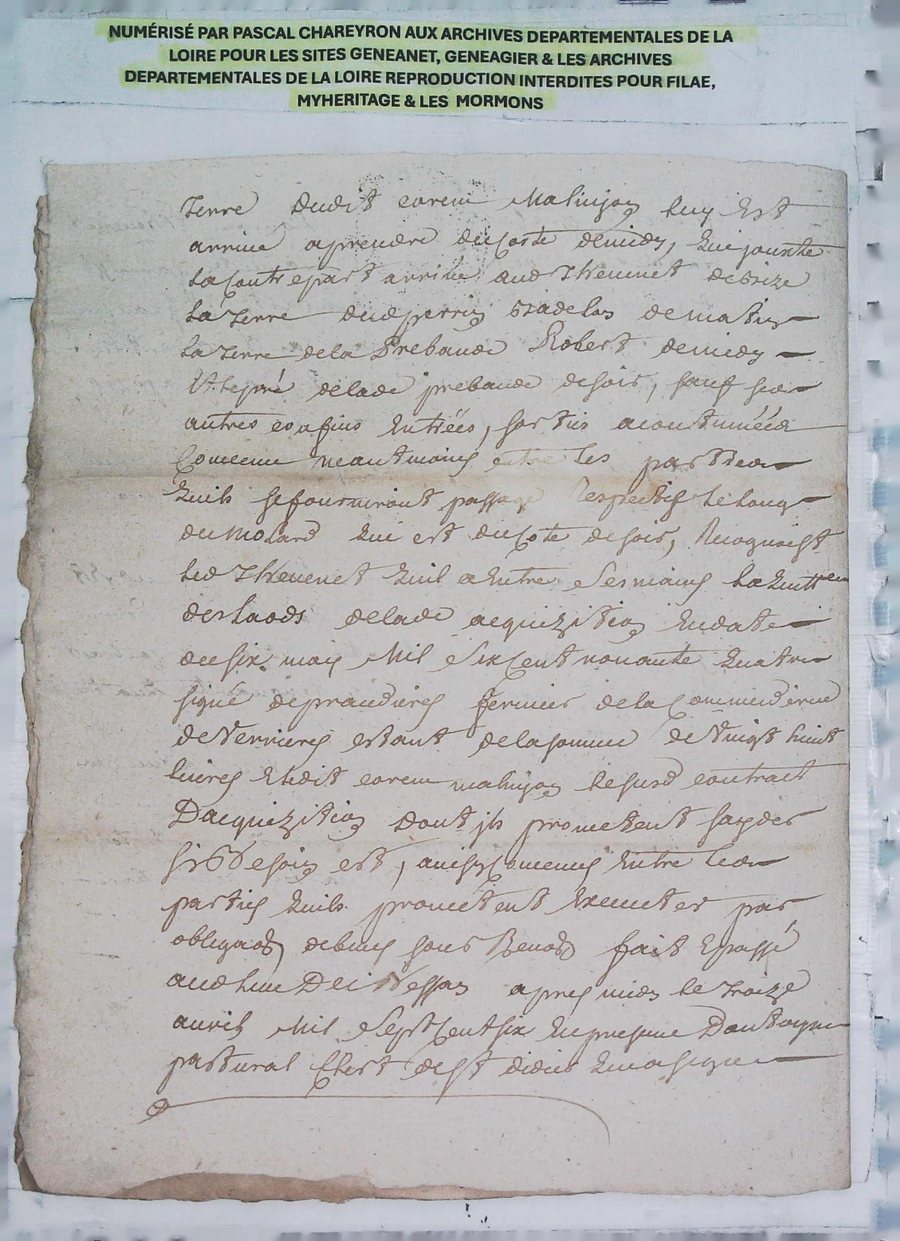 NUMÉRISÉ PAR PASCAL CHAREYRON AUX ARCHIVES DEPARTEMENTALES DE LA
LOIRE POUR LES SITES GENEANET, GENEAGIER & LES ARCHIVES
DEPARTEMENTALES DE LA LOIRE REPRODUCTION INTERDITES POUR FILAE,
MYHERITAGE & LES MORMONS
terre dudit Mathijon luy est
arrivé aprendre du coste demidy, qui jouxte
la contrepart arrivée aud Thevenet debize
la terre dud perrin de matin
la terre de la Prebande Robert demidy
et le pré delade prebande desoir, sauf ses
autres confins entrées, sorties acoutumées
Convenu neantmoins entre les parties
quils se fourniront passage respectif le long
du molard qui est du cote desoir, Recognoist
led Thevenet quil a entre ses mains la quittance
des laods delade acquizition en date
du six may mil six cent nonante quatre
signé deprandieres fermier de la Commanderie
de Verrieres estant de la somme de vingt huit
livres et ledit mathijon le susd contract
Dacquizition dont ils prometent sayder
si besoin est, ainsy convenu entre les
parties quils prometent executer par
obligaon debiens sous Renoon fait et passé
aud lieu De apres midy le treize
avril mil sept cent six en presence Danthoyne
pastural Clerc de st didier qui a signé